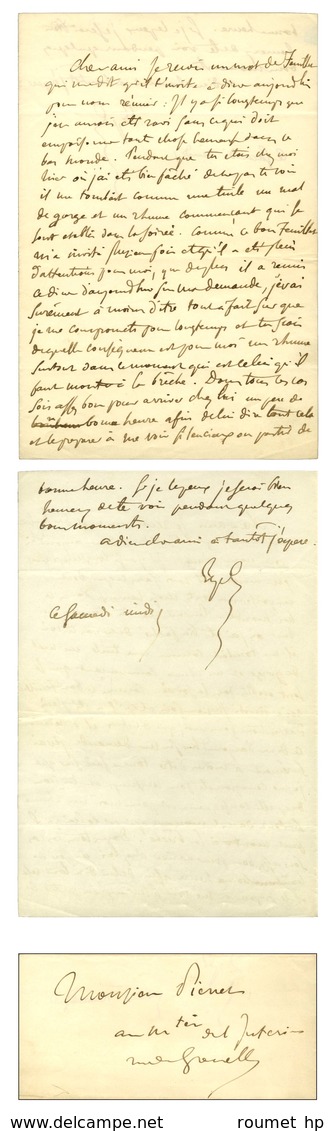 Cher ami je reçois un mot de Feuillet
qui me dit qu'il t'invite à dîner aujourd'hui
pour nous réunir : Il y a si longtemps que
j'en aurais été ravi sans ce qui doit
empoisonner toute chose heureuse dans ce
bas monde. Pendant que tu étais chez moi
hier où j'ai été bien fâché de ne pas te voir
il me tombait comme une tuile un mal
de gorge et un rhume commençant qui se
sont établis dans la soirée. Comme ce bon Feuillet
m'a invité plusieurs fois et qu'il a été plein
d'attentions pour moi, que de plus il a remis
ce dîner d'aujourd'hui sur ma demande, j'irai
sûrement à moins d'être tout à fait sûr que
je me compromets pour longtemps et tu sais
de quelle conséquence est pour moi un rhume
surtout dans le moment qui est celui qu'il
faut monter à la brèche. Dans tous les cas
sois assez bon pour arriver chez lui un peu de
bonne heure afin de lui dire tout cela
et le préparer à me voir silencieux ou partir de
bonne heure. Si je le peux je serai bien
heureux de te voir pendant quelques
bons moments.
adieu cher ami à tantôt j'espère.
Eug
ce samedi midi
Monsieur Pierret
au Mtère de l'Intérieur
rue de Grenelle
roumet hp